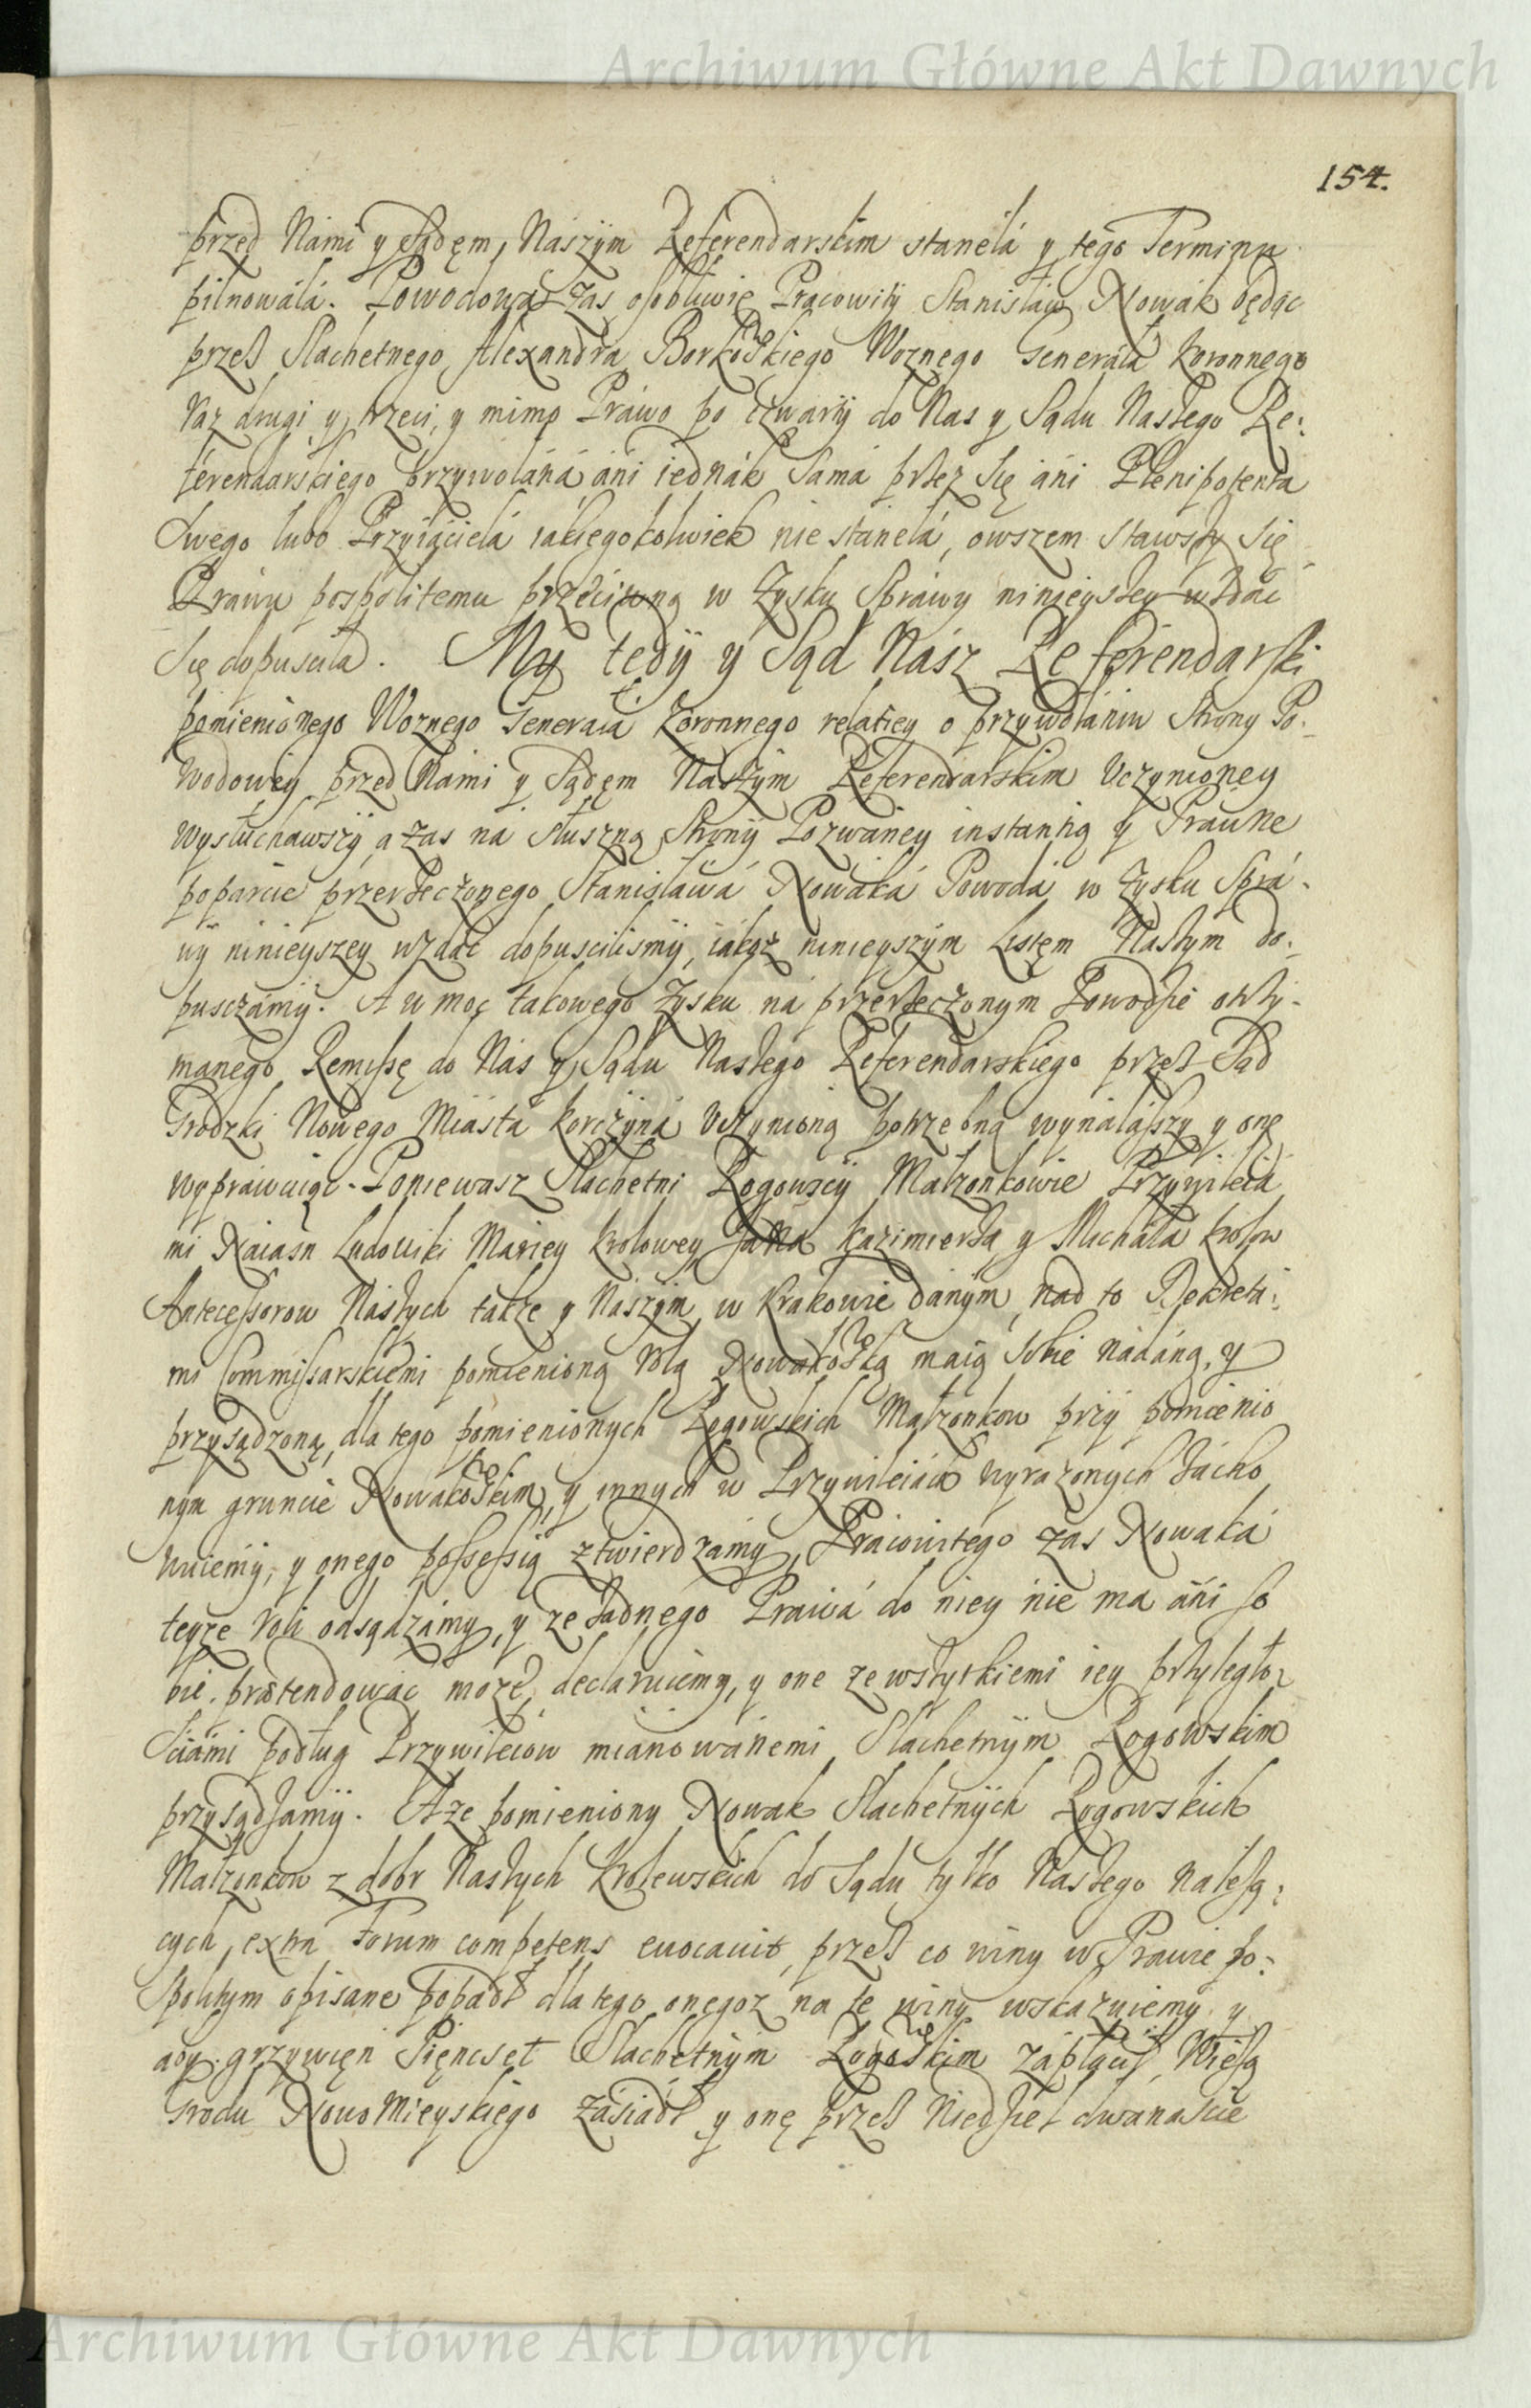 Archiwum Główne Akt Dawnych
154.
przed Nami y Sądęm Naszym Referendarskim stanęła y tego Terminu
pilnowáłá. Powodowa zas osobliwie Pracowity Stanisław Nowak będąc
przeß Slachetnego Alexandra Borkowskiego Woznego Generała Koronnego
raz drugi y trzeci, y mimo Prawo po czwarty do Nas y Sądu Naszego Re:
ferendarskiego przywołáná áni iednák Sama przez Się áni Plenipotenta
Swego lubo Przyiacielá iakiegokolwiek nie stánełá, owszem stawszy Się
Prawu pospolitemu przeciwną w Zysku Sprawy ninieyszey wzdac
Się dopuściła. My tedÿ y Sąd Nász Referendarski
pomienionego Woznego Generałá Koronnego relatiey o przywołániu Strony Po:
wodowey przed Nami y Sądęm Naszym Referendarskim Uczynioney
wysłuchawszÿ, a zas na słuszną Strony Pozwáney instantią y Prawne
poparcie przerzeczonego Stanisławá Nowáká Powodá w Zysku Sprá-
wÿ ninieyszey wzdác dopuscilismy, iákoż ninieyszym Listęm Naszym do:
pusczámÿ. A w moc takowego Zysku ná przerzeczonym Powodzie otrzy-
manego Remissę do Nás y Sądu Naszego Referendarskiego przeß Sąd
Grodzki Nowego Miásta Korczyná Uczynioną potrzebną wynalaszy y onę
wypráwuiąc. Poniewasz Slachetni Rogowscÿ Małzonkowie Przywileia
mi Naiasn Ludowiki Mariey Krolowey Jana Kazimierza y Michałá Krolow
Antecessorow Naszych także y Naszym w Krakowie danym nad to Dekreta:
mi Commissarskiemi pomienioną Rolą Nowakowską maią Sobie nádáną, y
przysądzoną, dla tego pomienionych Rogowskich Małzonkow przÿ pomienio
nym gruncie Nowakowskim, y innych w Przywileiách wyrazonych zácho
wuiemÿ, y onego possessią ztwierdzámy, Pracowitego zas Nowáká
teyze Roli odsądzámy, y ze żadnego Prawá do niey nie ma áni so
bie prætendowác może, declaruiemy, y one ze wszytkiemi iey przyległo
Sciámi podług Przywileiow miánowánemi Slachetnÿm Rogowskim
przysądzamÿ. A że pomieniony Nowak Slachetnÿch Rogowskich
Małzonkow z dobr Naszych Krolewskich do Sądu tylko Naszego nalezą:
cych, extra Forum competens evocavit, przeß co winy w Prawie po:
spolitym opisane popadł dla tego onegoz na te winy wskazuiemy y
aby grzywięn Pięncset Slachetnÿm Rogowskim zápłacił, Wieżą
Grodu Nowomieyskiego zásiadł y onę przeß Niedziel dwanascie
Archiwum Główne Akt Dawnych